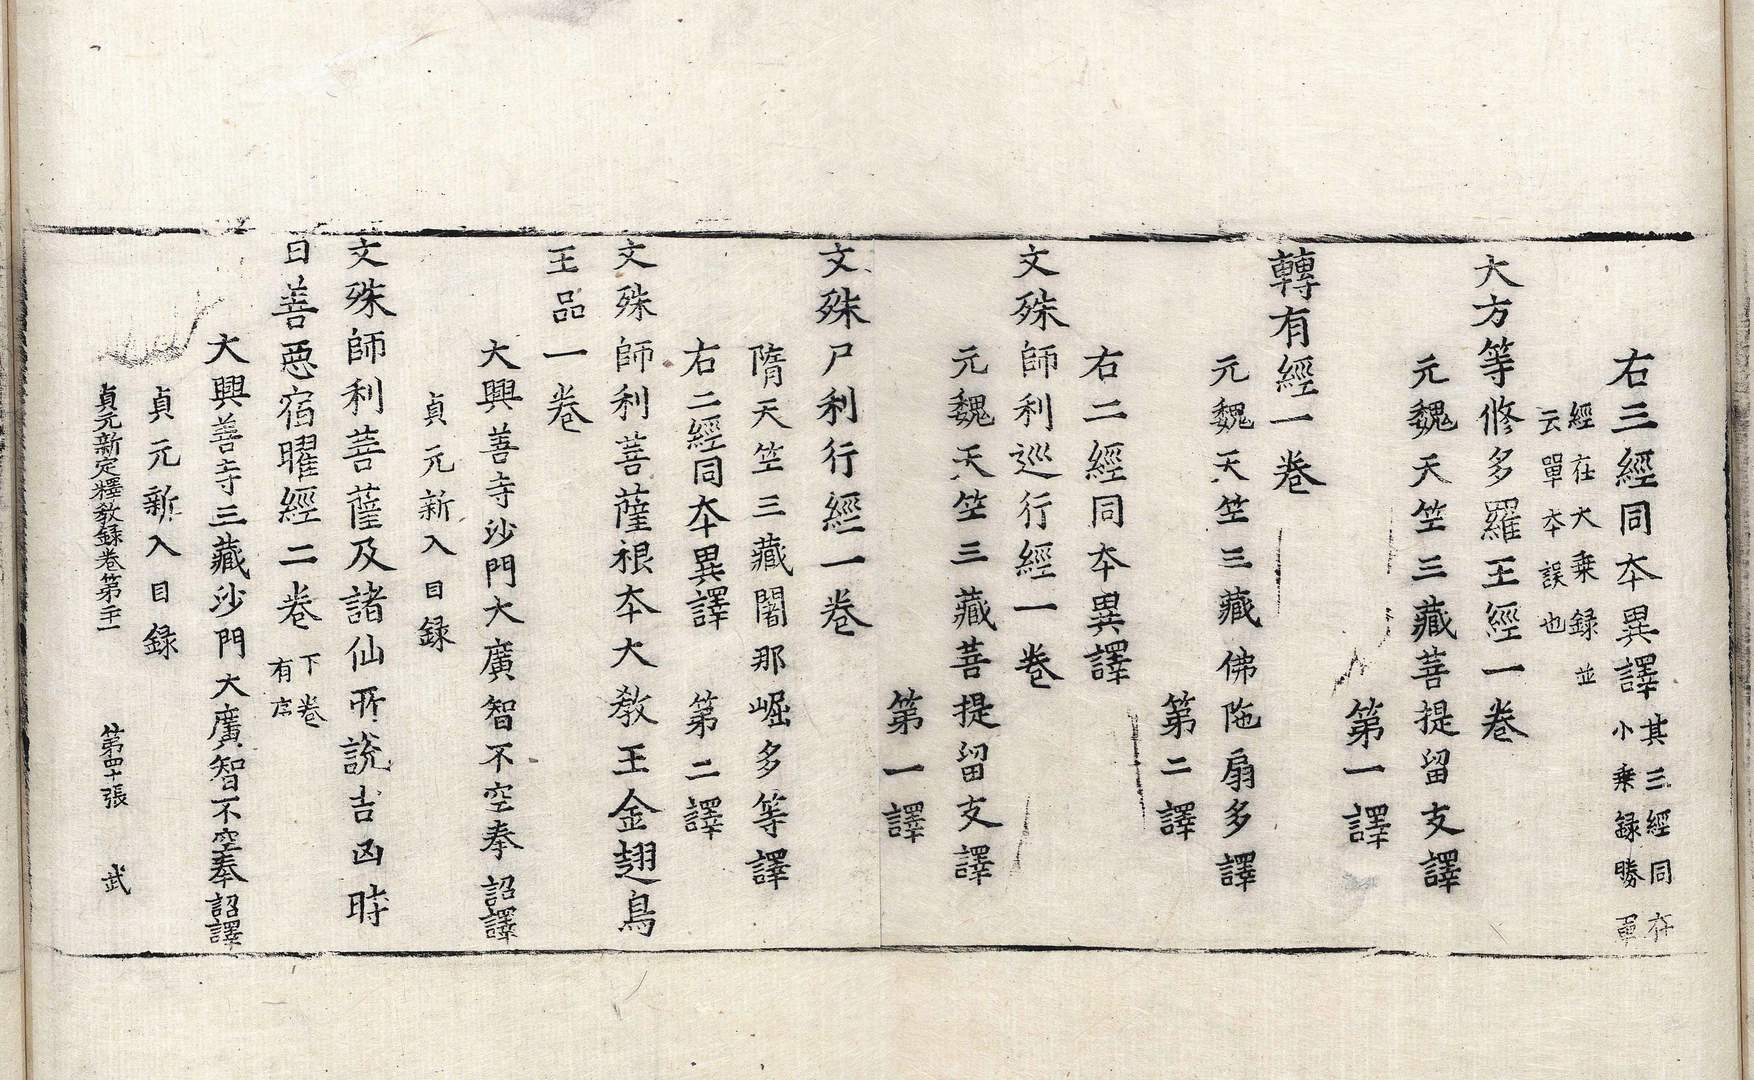 右三經同本異譯其三經同在小乘録勝軍
經在大乗録並云單本誤也
大方等修多羅王經一卷
元魏天竺三藏菩提留支譯
第一譯
轉有經一卷
元魏天竺三藏佛陁扇多譯
第二譯
右二經同本異譯
文殊師利巡行經一卷
元魏天竺三藏菩提留支譯
第一譯
文殊尸利行經一卷
隋天竺三藏闍那崛多等譯
右二經同本異譯　第二譯
文殊師利菩薩根本大教王金翅鳥
王品一卷
大興善寺沙門大廣智不空奉詔譯
貞元新入目録
文殊師利菩薩及諸仙所說吉凶時
日善惡宿曜經二卷下卷有序
大興善寺三藏沙門大廣智不空奉詔譯
貞元新入目録
貞元新定釋教録卷第二十一　第四十張　武